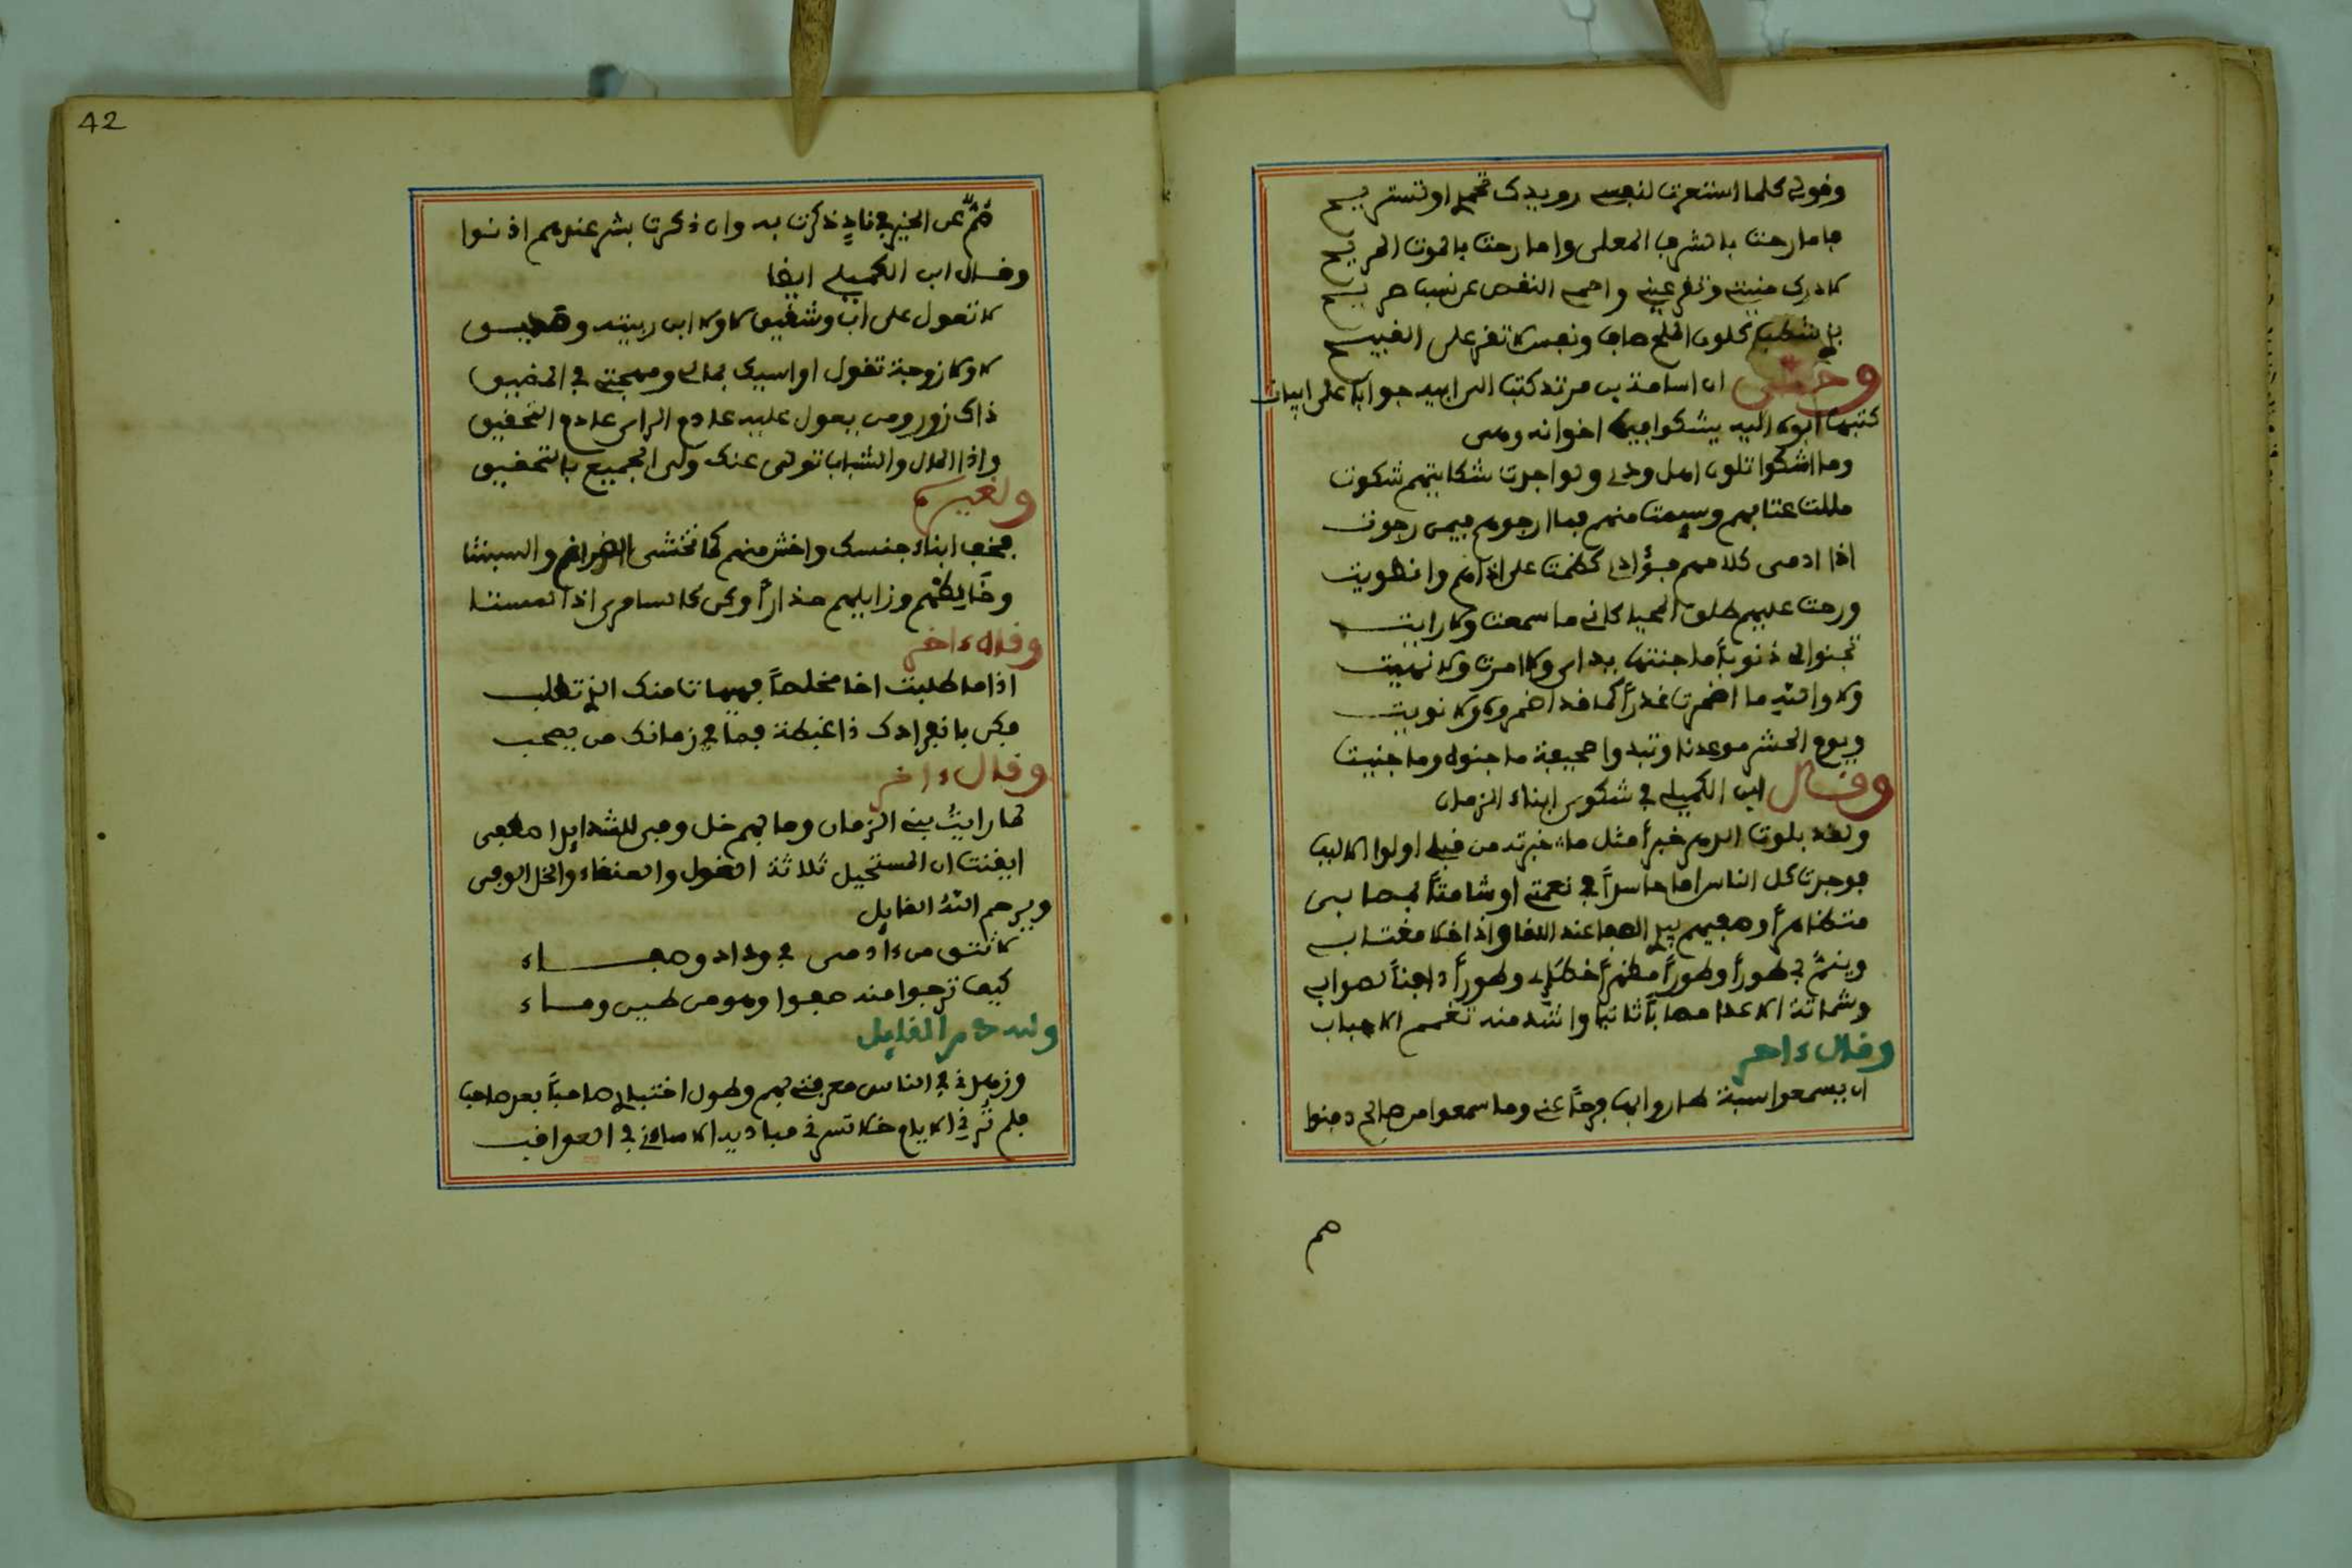 وقولي كلما استشعرت لنفسي رويدك تحمدي او تستريح
فاما رحت بالشرف المعلى واما رحت بالموت المريح
لادرك منيتي وتقر عيني واحمي النفس عن نسب صريح
بابيض كلون الملح صاف ونفس لا تقر على القبيح
وحكي ان اسامة بن مرثد كتب الى ابيه جوابا على ابيات
كتبها ابوه اليه يشكوا فيها اخوانه وهي
وما اشكوا تلون اهل ودي ولو اجدت شكايتهم شكوت
مللت عتابهم وسيمت منهم فما ارجوهم فيمن رجوت
اذا ادمى كلامهم فؤادي كظمت على اذاهم وانطويت
ورحت عليهم طلق المحيا كاني ما سمعت ولا رايت
تجنوا لي ذنوبا ما جنتها يداي ولا امرت ولا نهيت
ولا والله ما اضمرت غدرا كما قد اضمروه ولا نويت
ويوم الحشر موعدنا وتبدوا صحيفة ما جنوه وما جنيت
وقال ابن الكميلي في شكوى ابناء الزمان
ولقد بلوت الدهر خبرا مثل ما خبرته من قبلي اولوا الالباب
فوجدت كل الناس اما حاسدا في نعمتي او شامتا لمصابي
متظاهرا وهميم بي الصفا عند اللقا واذا خلا مغتابي
وينم بي طورا وطورا مظهرا خطئي وطورا دافنا لصوابي
وشماتة الاعدا مصابا ثانيا واشد منه تغمم الاحباب
وقال ءاخر
ان يسمعوا سبة طاروا بها فرحا عني وما سمعوا من صالح دفنوا
صم
42
صم عن الخير في ناد ذكرت به وان ذكرت بشر عندهم اذنوا
وقال ابن الكميلي ايضا
لا تعول على اب وشقيق لا ولا ابن ربيته وصديق
لا ولا زوجة تقول اواسيك بمالي ومهجتي في المضيق
ذاك زور ومن يعول عليه عادم الراي عادم التحقيق
واذا المال والشباب تولى عنك ولى الجميع بالتحقيق
ولغيره
فخف ابناء جنسك واخش منهم كما تخشى الضراغم والسبنتا
وخالطهم وزايلهم حذارا وكن كالسامري اذا لمستا
وقال ءاخر
اذا ما طلبت اخا مخلصا فهيهات منك الذي تطلب
فكن بانفرادك ذا غبطة فما في زمانك من يصحب
وقال ءاخر
لما رايت بني الزمان وما بهم خل وفي للشدايد اصطفي
ايقنت ان المستحيل ثلاثة الغول والعنقاء والخل الوفي
ويرحم الله القايل
لا تثق من ءادمي في وداد وصفاء
كيف ترجوا منه صفوا وهو من طين وماء
ولله در القايل
وزهدني في الناس معرفتي بهم وطول اختباري صاحبا بعد صاحب
فلم ترني الايام خلا تسرني مباديه الا ساءني في العواقب